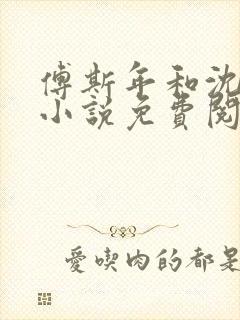 傅斯年和沈
小说免費閱
愛喫肉的都是